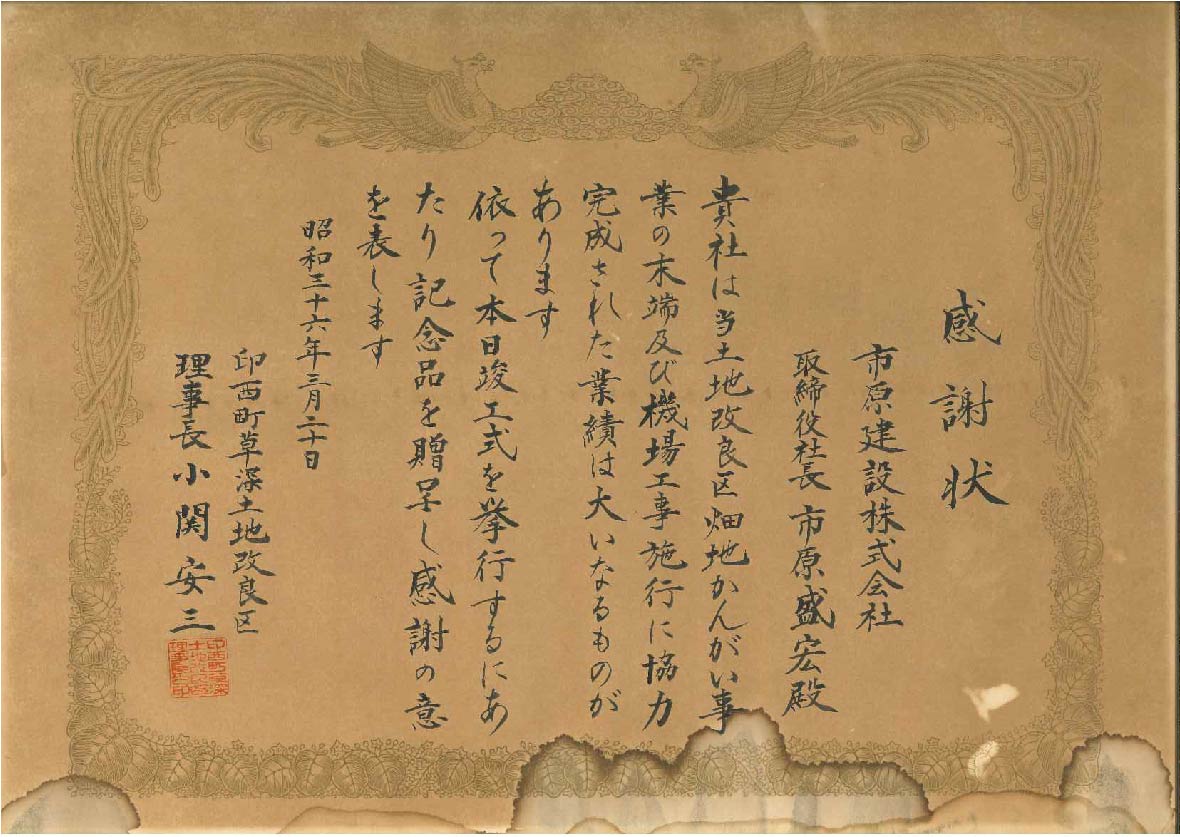 感謝状
市原建設株式会社
取締役社長 市原盛宏殿
貴社は当土地改良区畑地かんがい事
業の末端及び機場工事施行に協力
完成された業績は大いなるものが
あります
依って本日竣工式を挙行するにあ
たり記念品を贈呈し感謝の意
を表します
昭和三十六年三月二十日
印西町草深土地改良区
理事長 小関安三